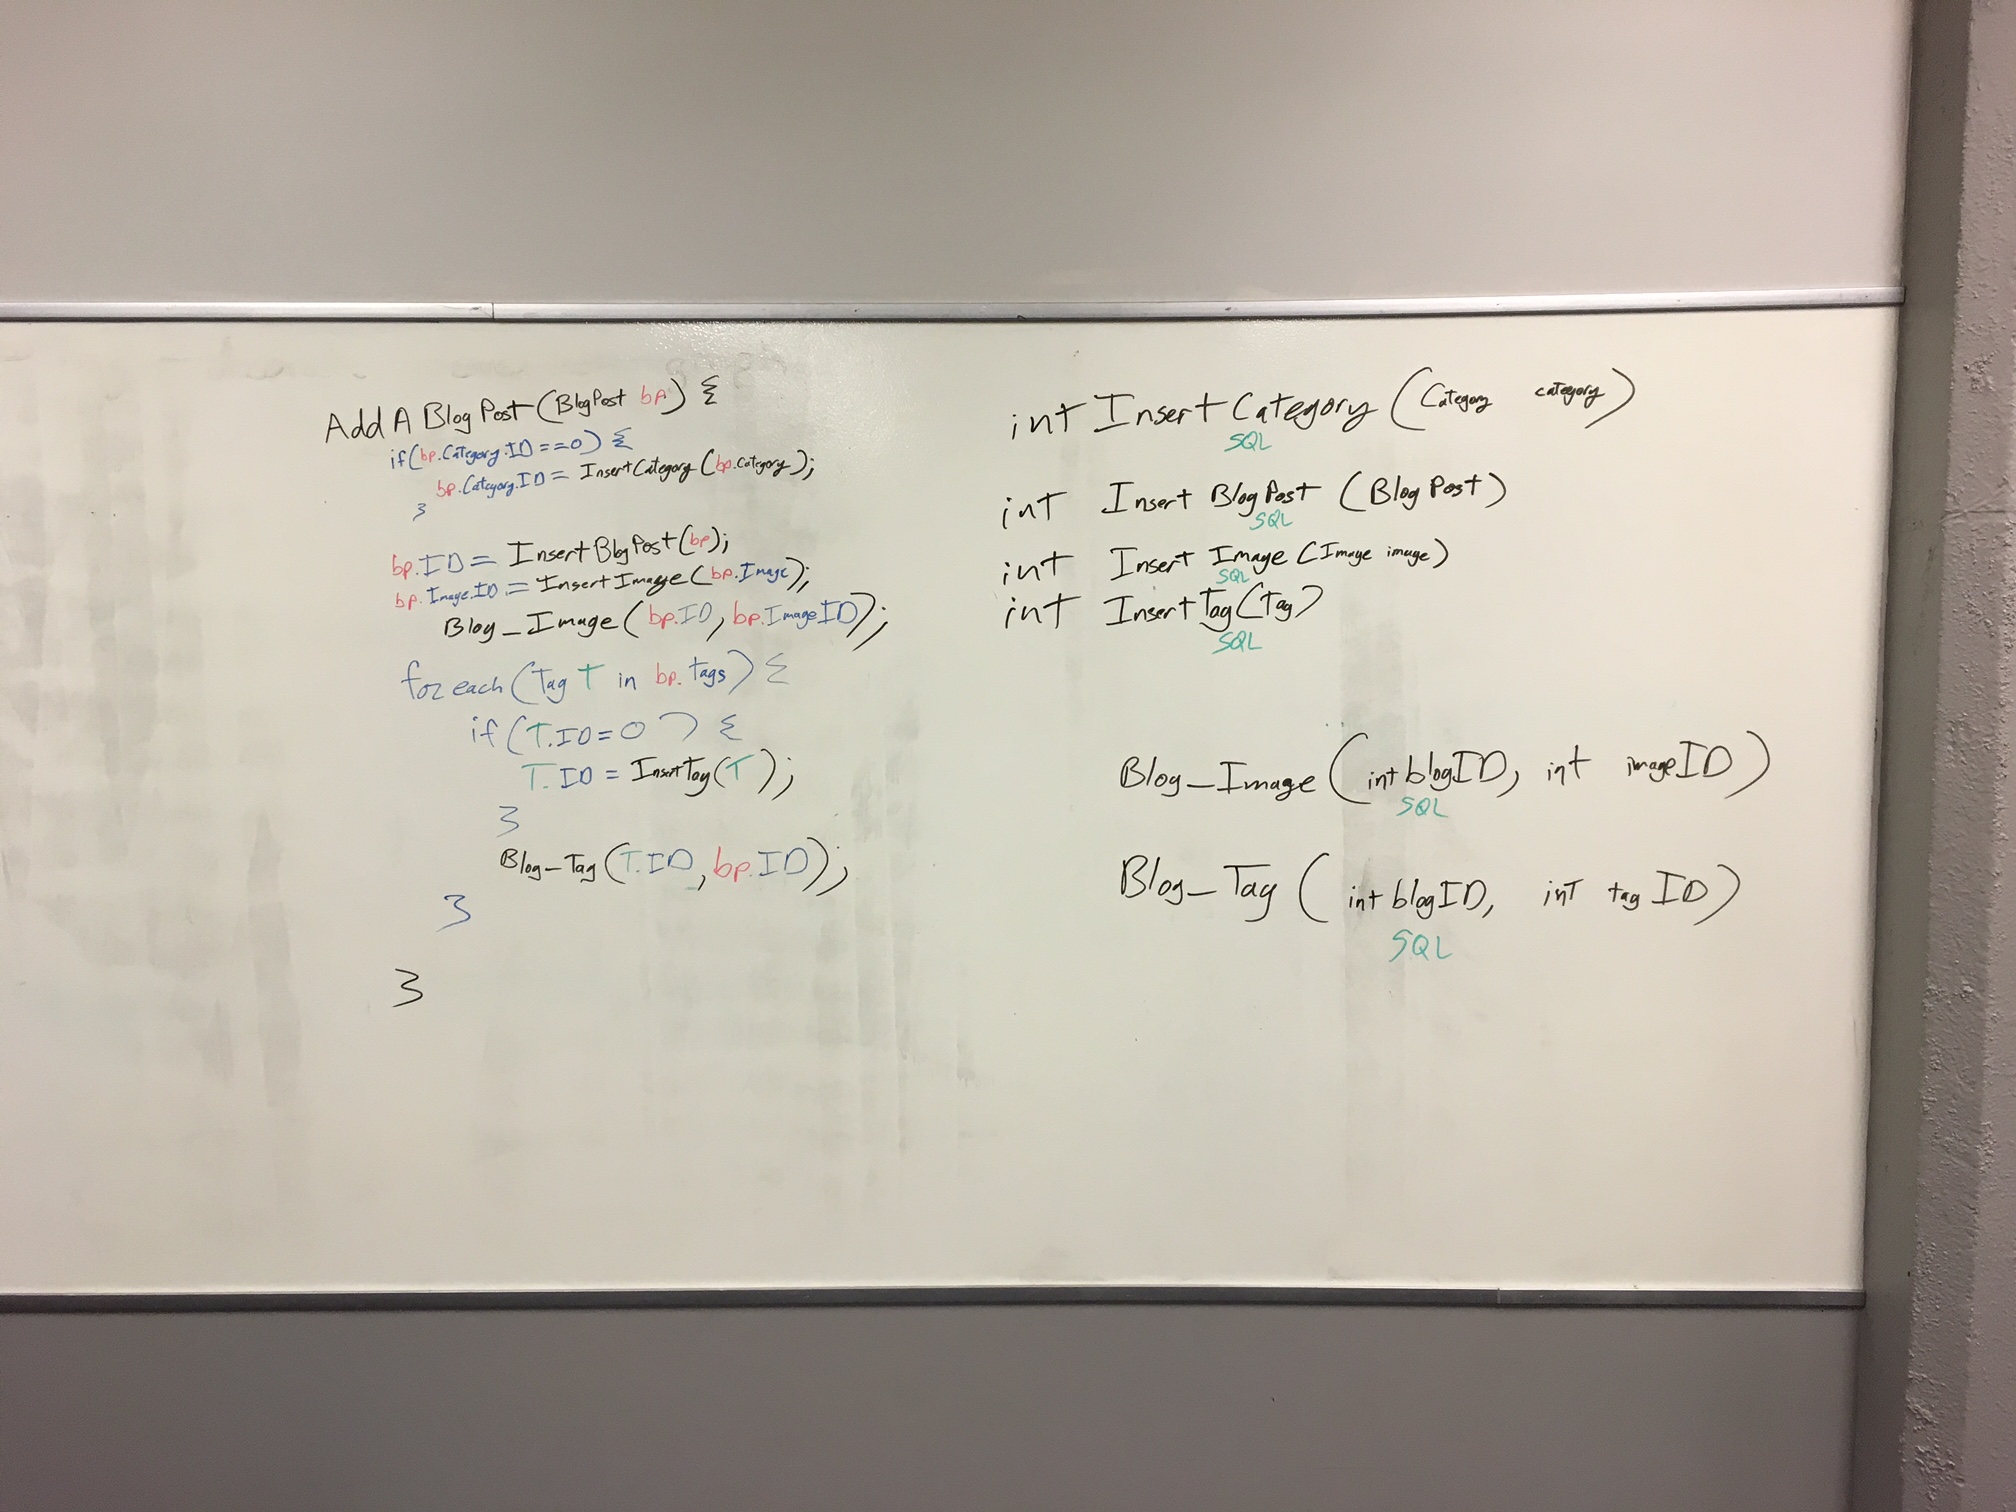 Add A Blog Post (BlogPost bp) {
if(bp.Category.ID==0) {
bp.Category.ID = InsertCategory(bp.category);
}
bp.ID = InsertBlogPost(bp);
bp.Image.ID = InsertImage(bp.Image);
Blog_Image(bp.ID, bp.ImageID);
foreach (Tag T in bp.tags) {
if (T.ID=0) {
T.ID = InsertTag(T);
}
Blog_Tag(T.ID, bp.ID);
}
}
int Insert Category (Category category)
SQL
int Insert Blog Post (Blog Post)
SQL
int Insert Image (Image image)
SQL
int Insert Tag (Tag)
SQL
Blog_Image (int blogID, int imageID)
SQL
Blog_Tag (int blogID, int tagID)
SQL